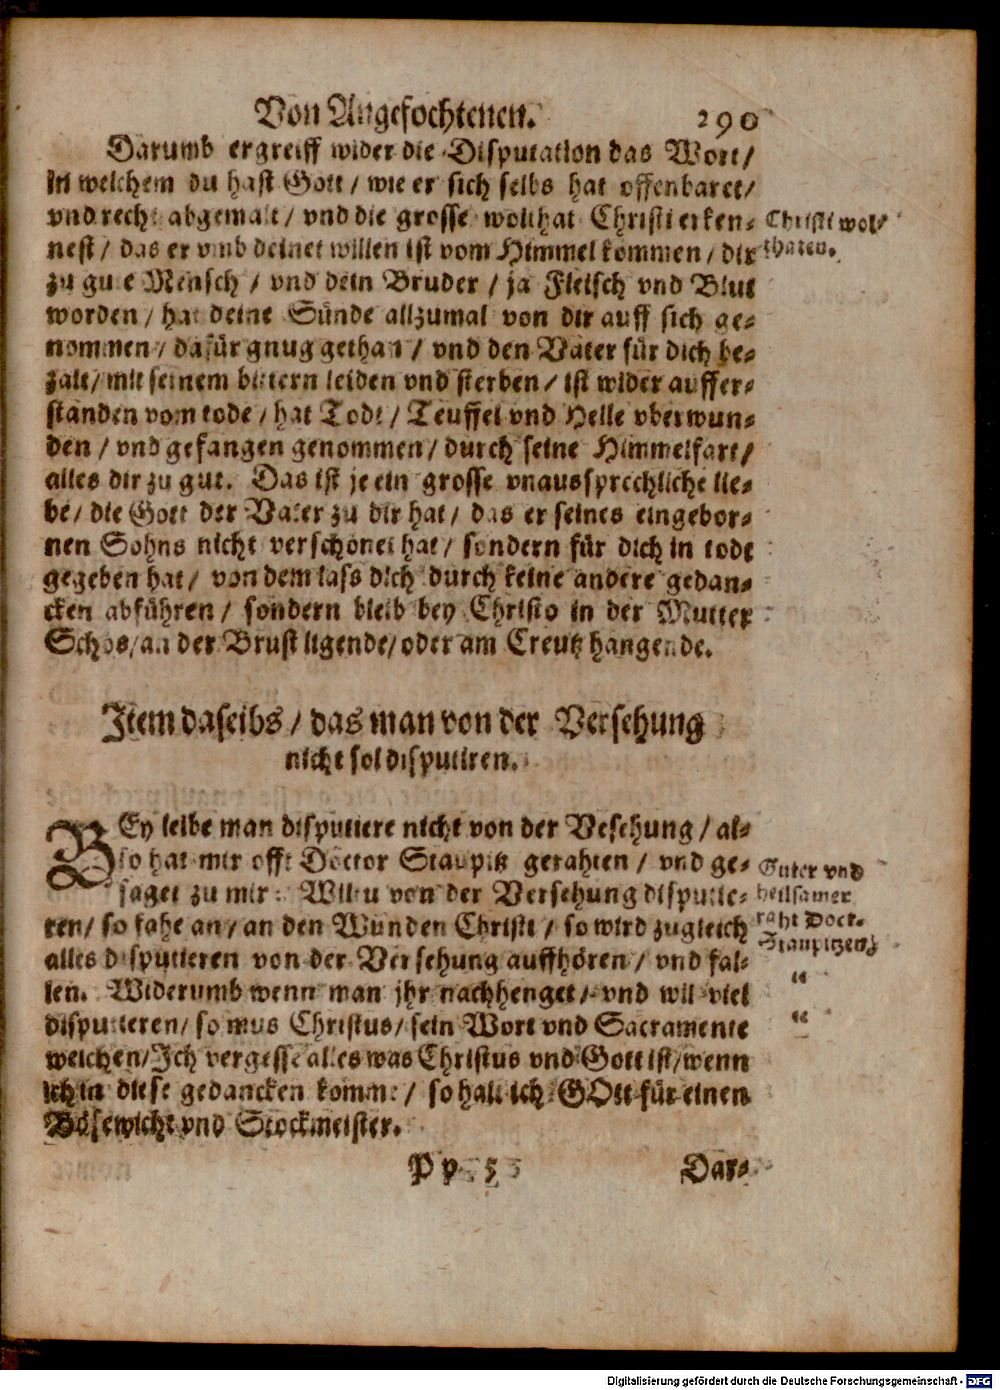 Von Angefochtenen. 290
Darumb ergreiff wider die Disputation das Wort/
in welchem du hast Gott/ wie er sich selbs hat offenbaret/
vnd recht abgemalt/ vnd die grosse wolthat Christi erken-
nest/ das er vmb deinet willen ist vom Himmel kommen/ dir
Christi wol-
thaten.
zu gute Mensch/ vnd dein Bruder/ ja Fleisch vnd Blut
worden/ hat deine Sünde allzumal von dir auff sich ge-
nommen/ dafür gnug gethan/ vnd den Vater für dich be-
zalt/ mit seinem bittern leiden vnd sterben/ ist wider auffer-
standen vom tode/ hat Todt/ Teuffel vnd Helle vberwun-
den/ vnd gefangen genommen/ durch seine Himmelfart/
alles dir zu gut. Das ist je ein grosse vnaussprechliche lie-
be/ die Gott der Vater zu dir hat/ das er seines eingebor-
nen Sohns nicht verschonet hat/ sondern für dich in todt
gegeben hat/ von dem lass dich durch keine andere gedan-
cken abführen/ sondern bleib bey Christo in der Mutter
Schos/ an der Brust ligende/ oder am Creutz hangende.
Item daselbs/ das man von der Versehung
nicht sol disputiren.
BEy leibe man disputiere nicht von der Vesehung/ al-
so hat mir offt Doctor Staupitz gerahten/ vnd ge-
saget zu mir: Wiltu von der Versehung disputie-
ren/ so fahe an/ an den Wunden Christi/ so wird zugleich
alles disputieren von der Versehung auffhören/ vnd fal-
len. Widerumb wenn man jhr nachhenget/ vnd wil viel
disputieren/ so mus Christus/ sein Wort vnd Sacramente
weichen/ Ich vergesse alles was Christus vnd Gott ist/ wenn
ich in diese gedancken komme/ so halt ich GOtt für einen
Bösewicht vnd Stockmeister.
Guter vnd
heilsamer
raht Doct.
Staupitzens
“
“
Pp 5 Dar-
Digitalisierung gefördert durch die Deutsche Forschungsgemeinschaft - DFG